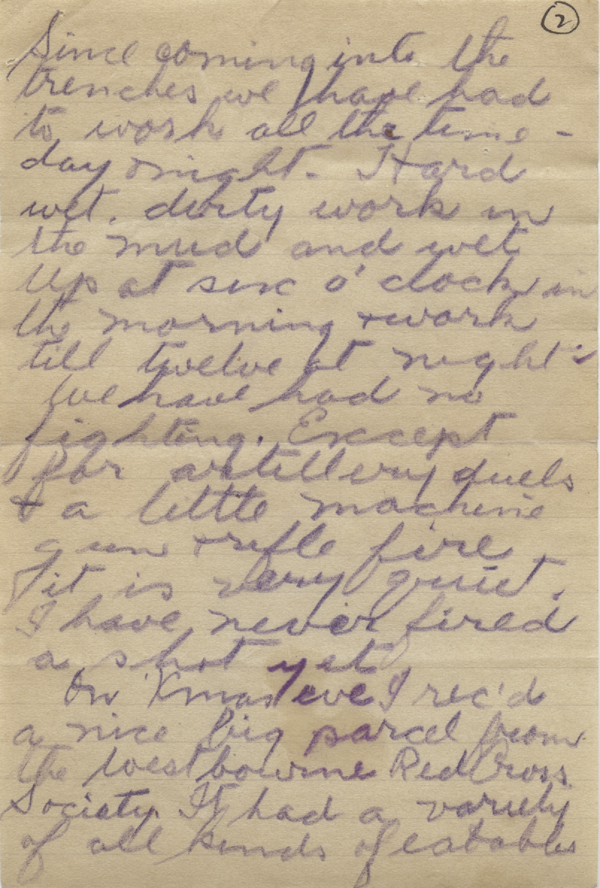 2
Since coming into the
trenches we have had
to work all the time -
day + night. Hard
wet, dirty work in
the mud and wet
Up at six o'clock in
the morning + work
till twelve at night.
We have had no
fighting. Except
for artillery duels
+ a little machine
gun + rifle fire
it is very quiet.
I have never fired
a shot yet.
On Xmas eve I rec'd
a nice big parcel from
the Westbourne Red Cross
Society. It had a variety
of all kinds of eatables